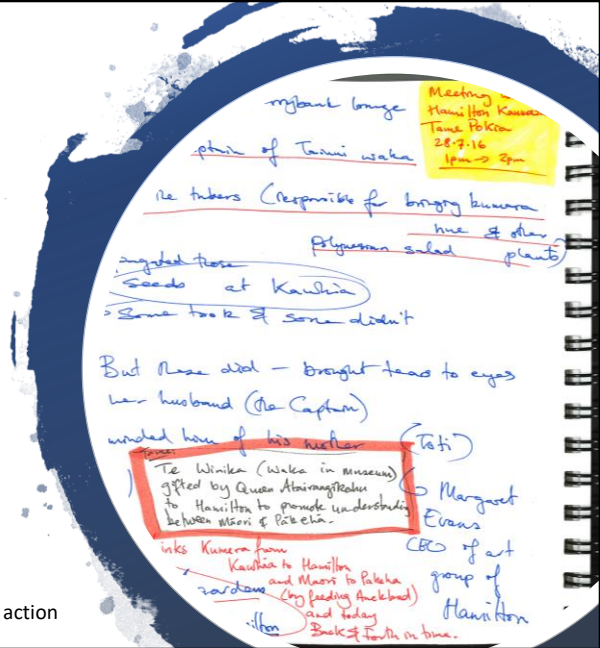 Meeting
Hamilton
Tame Pokia
28.7.16
1pm → 2pm
mybank lounge
ptain of Tainui waka
he tubers (responsible for bringing kumera
hue & other
polynesian salad plants)
those
seeds at Kawhia
> Some took & some didn't
But these did — brought tears to eyes
her husband (the Captain)
minded him of his mother (Toti)
Te Winika (waka in museum)
gifted by Queen Atairangikahu
to Hamilton to promote understanding
between Māori & Pākehā.
Margaret
Evans
CEO of art
group of
Hamilton
inks Kumera from
Kawhia to Hamilton
and Maori to Pakeha
(by feeding Auckland)
and today
Back & forth in time.
ardens
ilton
action